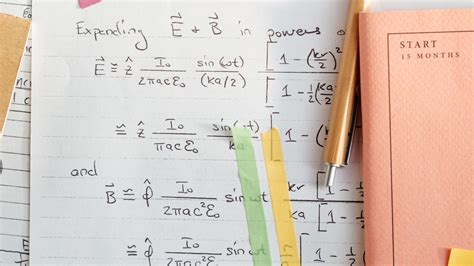 Expanding E⃗ + B⃗ in powers o
E⃗ ≅ ẑ I₀/(2πacε₀) sin(ωt)/(ka/2) [1 - (kr/2)²
[1 - ½(ka/2)
≅ ẑ I₀/(2πacε₀) sin(ωt)/ka [1 -
and
B⃗ ≅ φ̂ I₀/(2πac²ε₀) sin ωt kr/ [1 - ½
[1 - ½
≅ φ̂ I₀/(2πac²ε₀) sin ωt
START
15 MONTHS